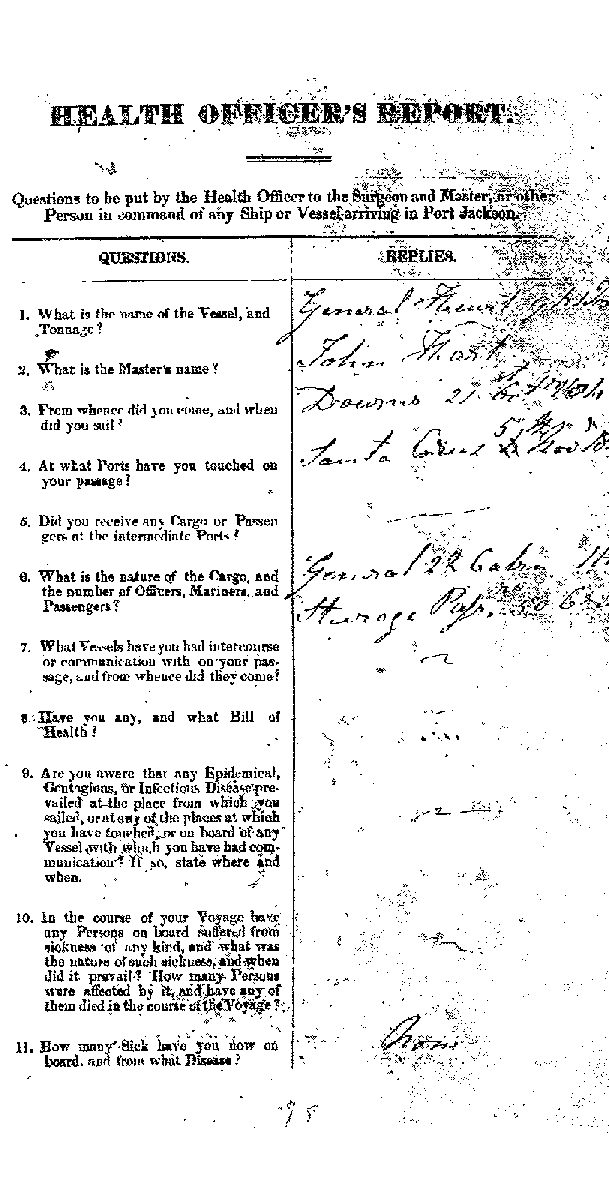 HEALTH OFFICER'S REPORT.
Questions to be put by the Health Officer to the Surgeon and Master, or other
Person in command of any Ship or Vessel arriving in Port Jackson.
QUESTIONS.
REPLIES.
1. What is the name of the Vessel, and
Tonnage?
General
2. What is the Master's name?
John
3. From whence did you come, and when
did you sail?
Downs 21
4. At what Ports have you touched on
your passage?
Santa Cruz 5
5. Did you receive any Cargo or Passen
gers at the intermediate Ports?
6. What is the nature of the Cargo, and
the number of Officers, Mariners, and
Passengers?
General 22 Cabin
7. What Vessels have you had intercourse
or communication with on your pas-
sage, and from whence did they come?
8. Have you any, and what Bill of
Health?
9. Are you aware that any Epidemical,
Contagious, or Infectious Disease pre-
vailed at the place from which you
sailed, or at any of the places at which
you have touched, or on board of any
Vessel with which you have had com-
munication? If so, state where and
when.
10. In the course of your Voyage have
any Persons on board suffered from
sickness of any kind, and what was
the nature of such sickness, and when
did it prevail? How many Persons
were affected by it, and have any of
them died in the course of the Voyage?
11. How many Sick have you now on
board, and from what Disease?
None